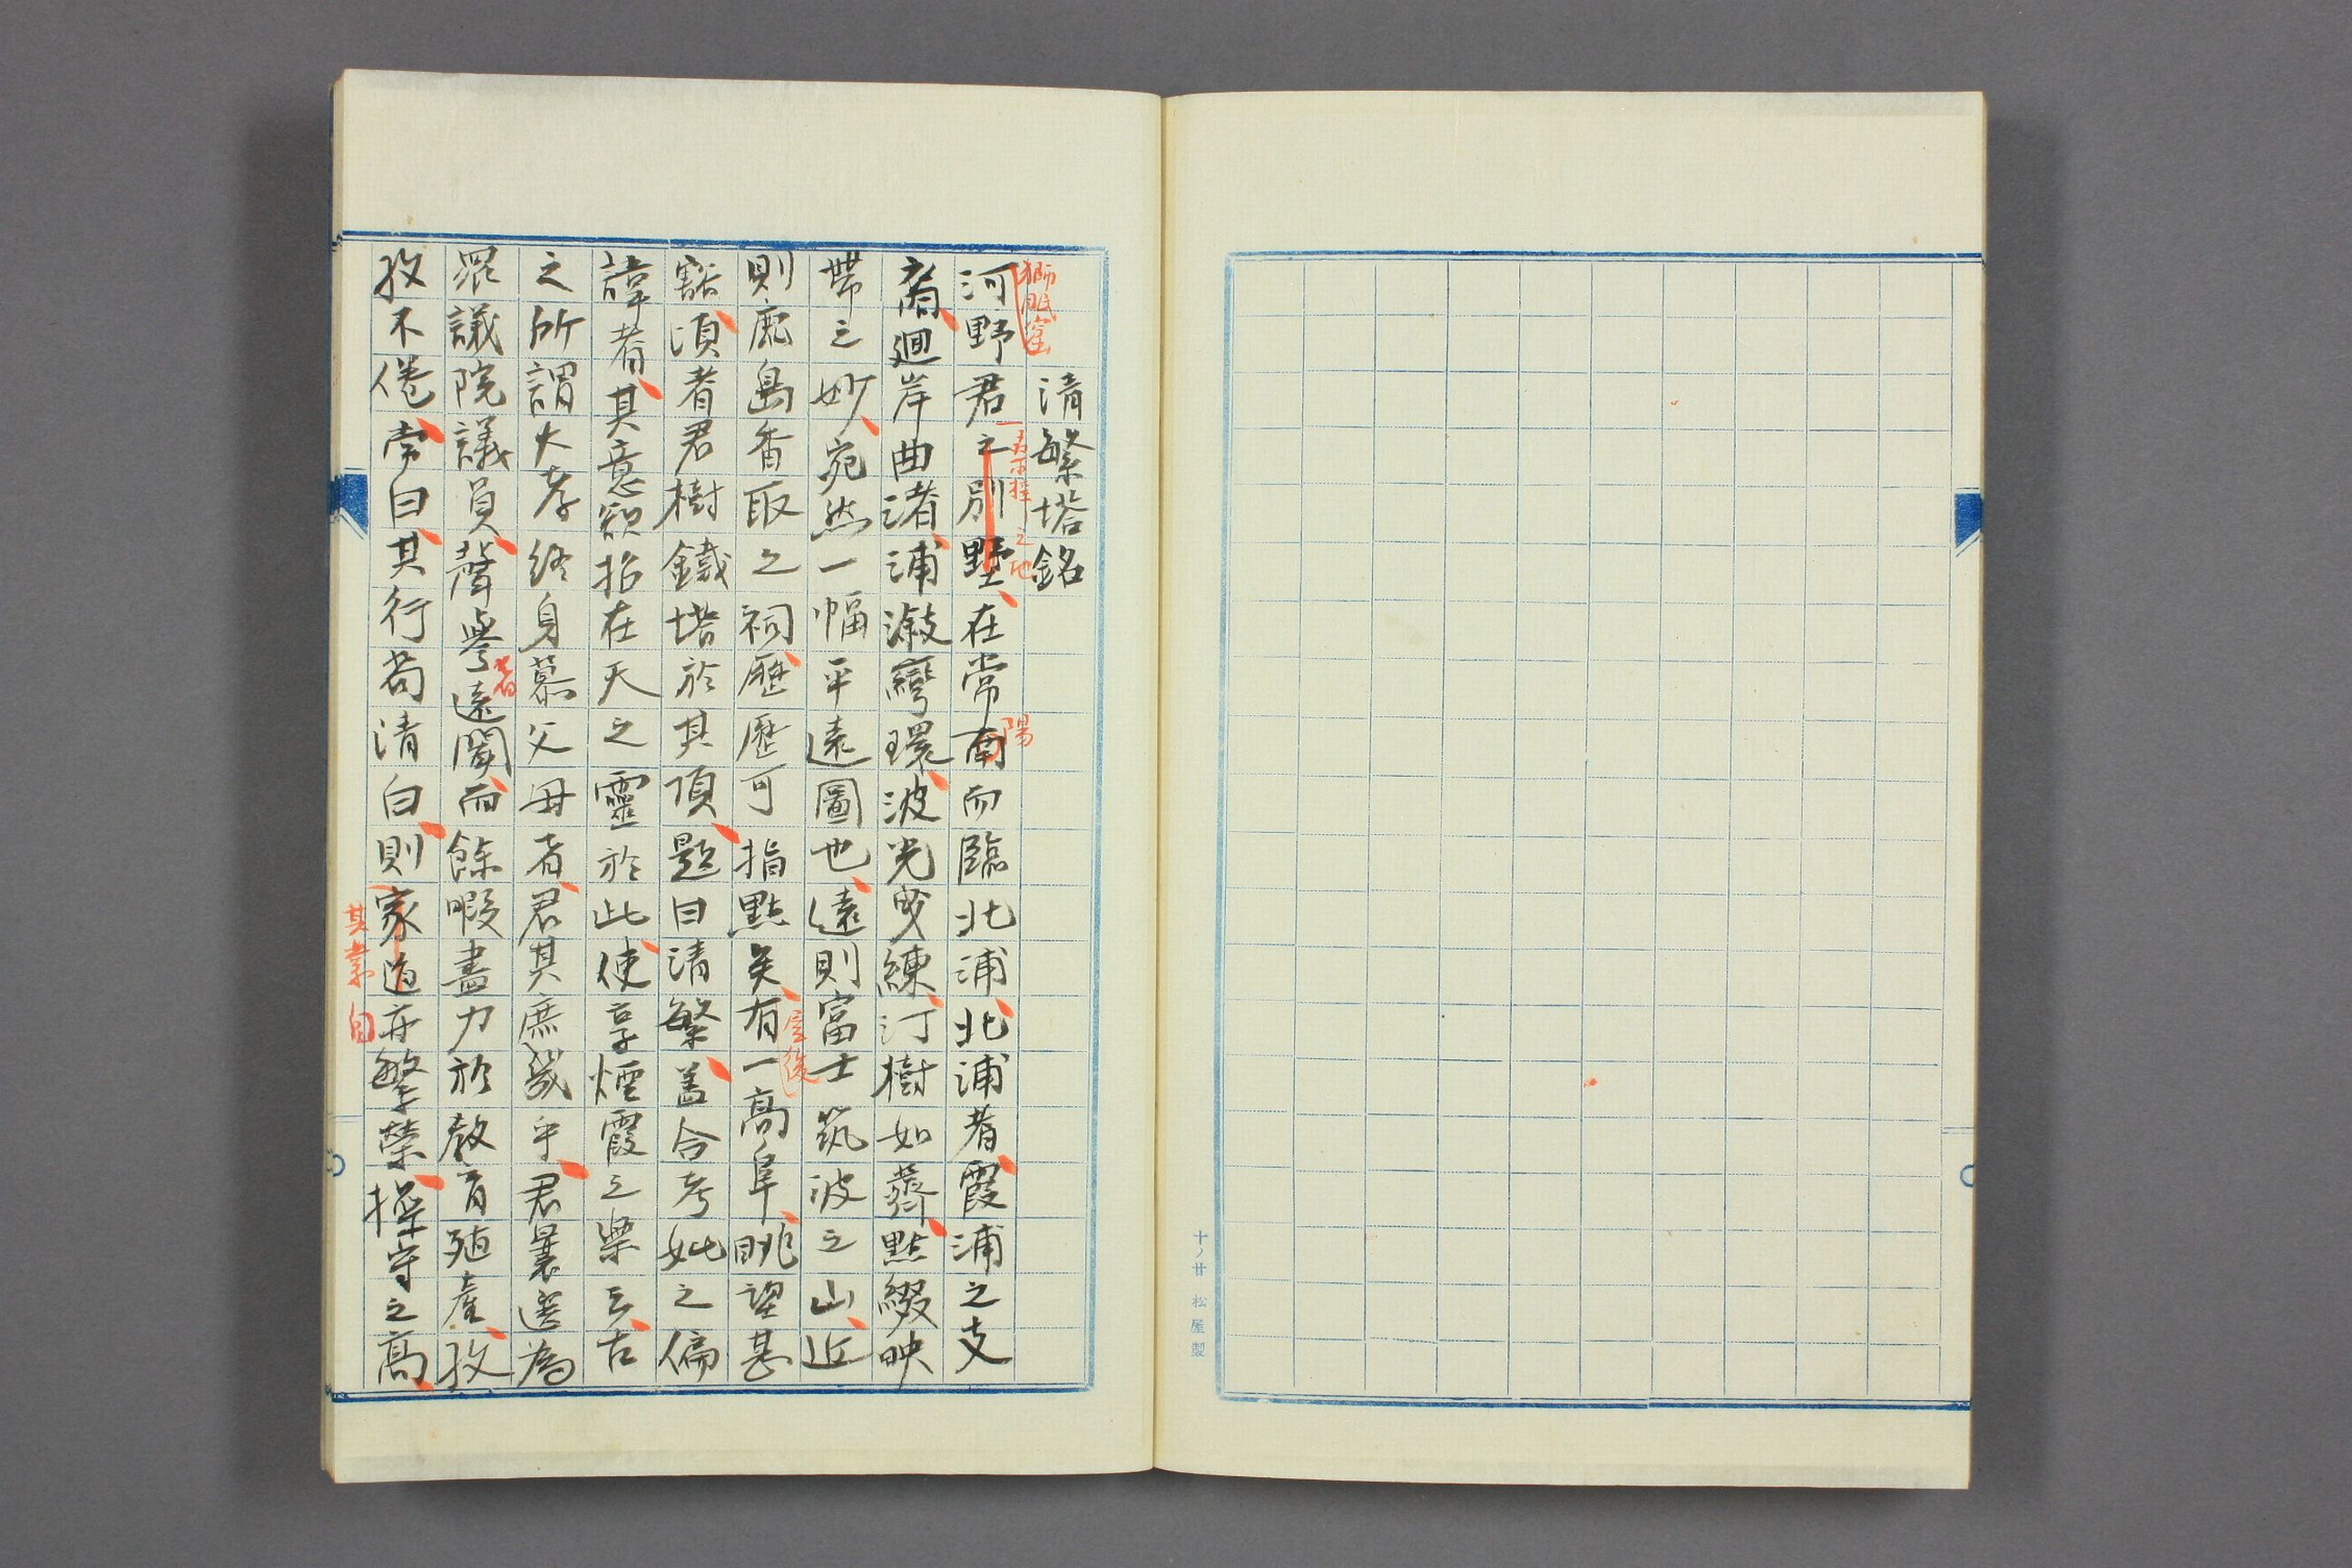 清繁塔銘
獅眠窟
河野君之別墅、在常南而臨北浦、北浦者、霞浦之支
之地
陽
裔、迴岸曲渚、浦溆彎環、波光曳練、汀樹如薺、點綴映
帶之妙、宛然一幅平遠圖也、遠則富士筑波之山、近
則鹿島香取之祠、歷歷可指點矣、有一高阜、眺望甚
屋後
豁、頃者君樹鐵塔於其頂、題曰清繁、蓋合考妣之偏
諱者、其意欲招在天之靈於此、使享煙霞之樂云、古
之所謂大孝終身慕父母者、君其庶幾乎、君曩選為
眾議院議員、聲譽遠聞、而餘暇盡力於教育殖產、孜
者
孜不倦、常曰、其行苟清白、則家道亦繁榮、操守之高、
其業自
十ノ廿 松屋製